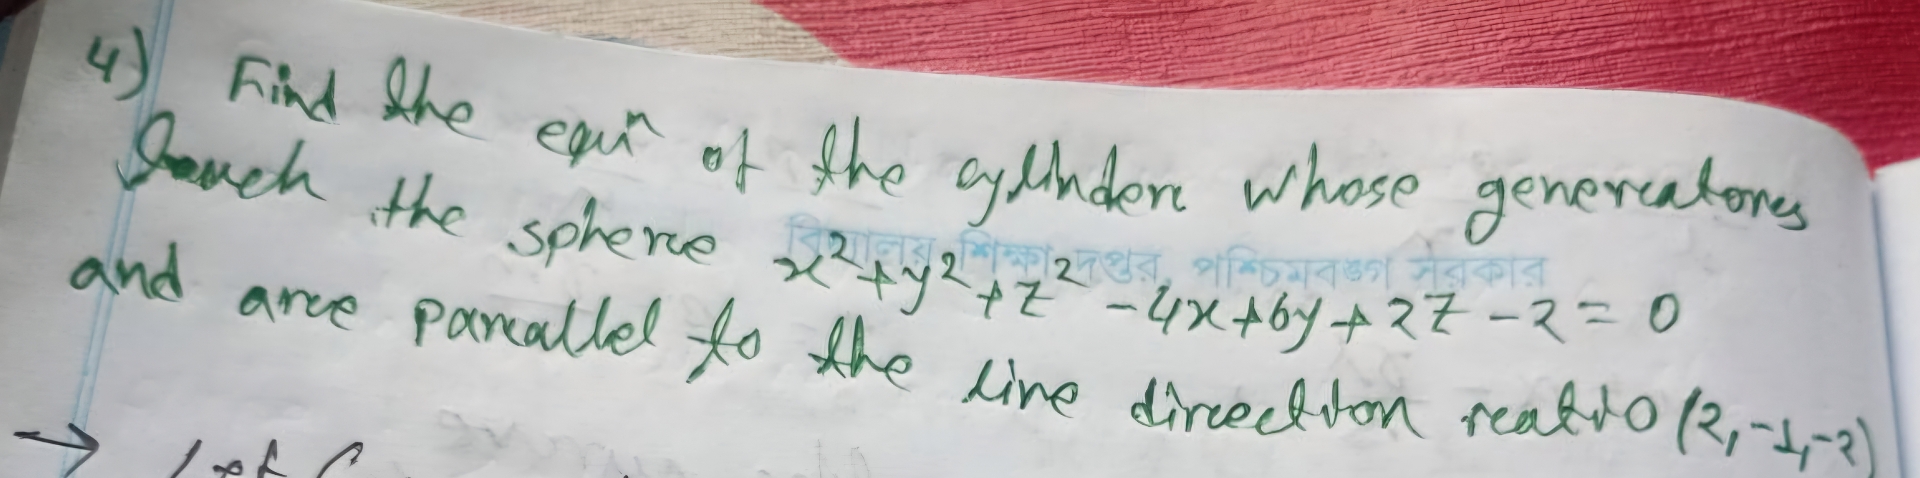 4) Find the equⁿ of the cylinder whose generators
touch the sphere x²+y²+z²-4x+6y+2z-2=0
বিদ্যালয় শিক্ষা দপ্তর, পশ্চিমবঙ্গ সরকার
and are parallel to the line direction ratio (2,-1,-2)
→ Let